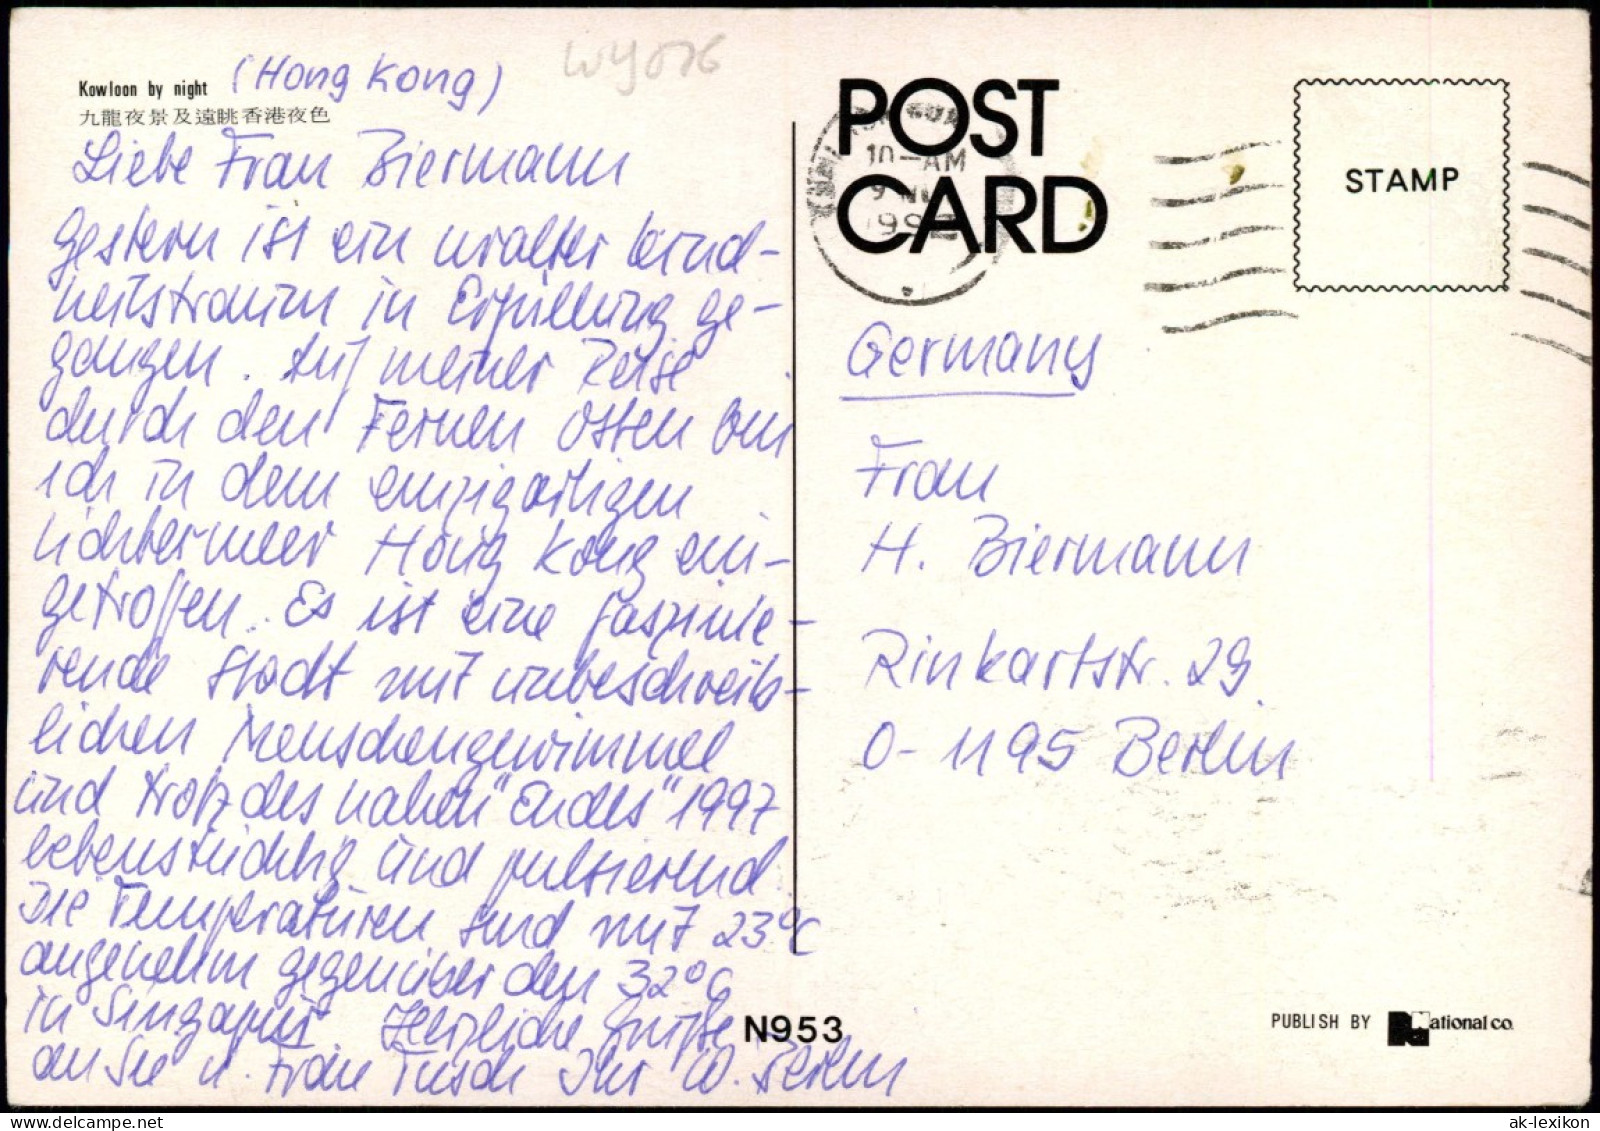 Kowloon by night (Hong Kong)
九龍夜景及遠眺香港夜色
wy076
Liebe Frau Biermann
gestern ist ein uralter Kind-
heitstraum in Erfüllung ge-
gangen. Auf meiner Reise
durch den Fernen Osten bin
ich in dem einzigartigen
Lichtermeer Hong Kong ein-
getroffen. Es ist eine faszinie-
rende Stadt mit unbeschreib-
lichen Menschengewimmel
und trotz des nahen "Endes" 1997
lebenstüchtig und pulsierend.
Die Temperaturen sind mit 23°C
angenehm gegenüber den 32°C
in Singapur Herzliche Grüße
an Sie u. Frau Tusch Ihr W.
POST
CARD
10-AM
STAMP
Germany
Frau
H. Biermann
Rinkartstr. 29
O-1195 Berlin
N953
PUBLISH BY National co.
ak-lexikon